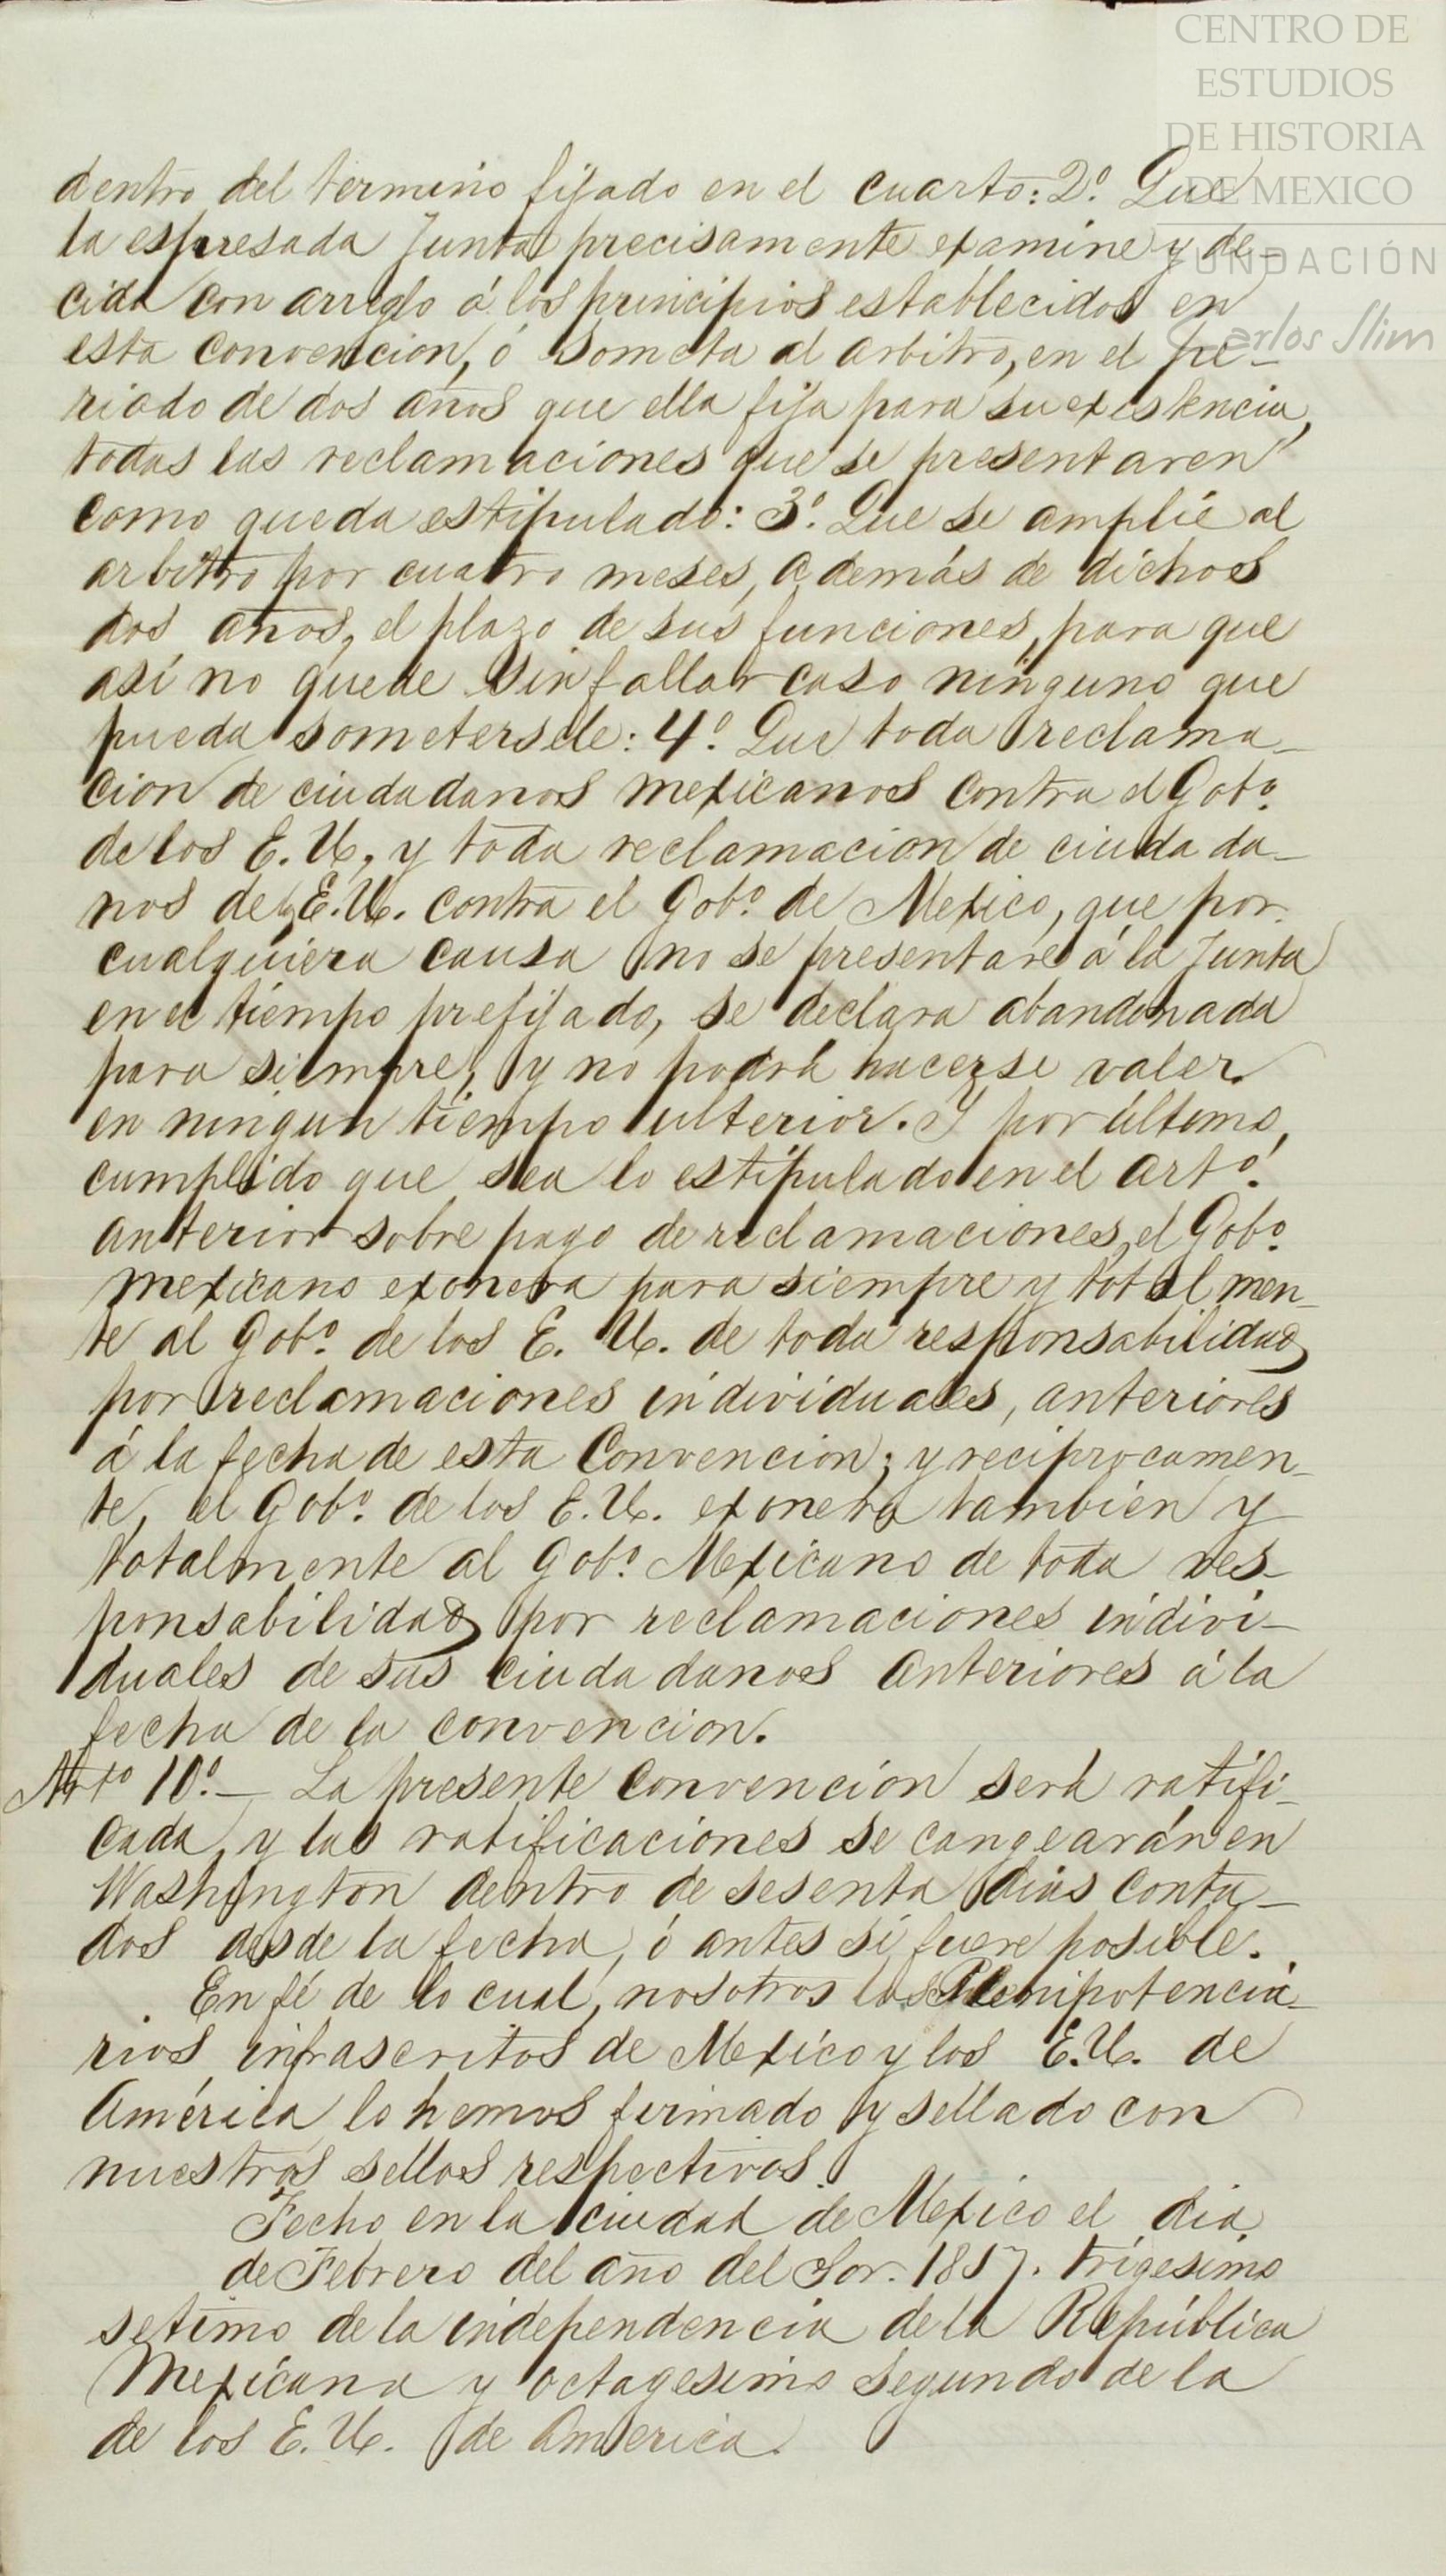 CENTRO DE
ESTUDIOS
DE HISTORIA
DE MEXICO
FUNDACIÓN
Carlos Slim
dentro del termino fijado en el cuarto: 2º. Que
la espresada Junta precisamente examine y de-
cida con arreglo á los principios establecidos en
esta convencion, ó someta al arbitro, en el pe-
riodo de dos años que ella fija para su existencia,
todas las reclamaciones que se presentaren
como queda estipulado: 3º. Que se amplíe al
arbitro por cuatro meses, además de dichos
dos años, el plazo de sus funciones, para que
así no quede sin fallar caso ninguno que
pueda sometersele: 4º. Que toda reclama-
cion de ciudadanos mexicanos contra el Gobº.
de los E. U., y toda reclamacion de ciudada-
nos de E. U. contra el Gobº. de Mexico, que por
cualquiera causa no se presentare á la Junta
en el tiempo prefijado, se declara abandonada
para siempre, y no podrá hacerse valer
en ningun tiempo ulterior. Y por último,
cumplido que sea lo estipulado en el artº.
anterior sobre pago de reclamaciones, el Gobº.
mexicano exonera para siempre y total men-
te al Gobº. de los E. U. de toda responsabilidad
por reclamaciones individuales, anteriores
á la fecha de esta Convencion; y reciprocamen-
te, el Gobº. de los E. U. exonera tambien y
totalmente al Gobº. Mexicano de toda res-
ponsabilidad por reclamaciones indivi-
duales de sus ciudadanos anteriores á la
fecha de la convencion.
Artº 10º. — La presente convencion será ratifi-
cada, y las ratificaciones se cangearán en
Washington dentro de sesenta dias conta-
dos desde la fecha, ó antes si fuere posible.
En fé de lo cual, nosotros los Plenipotencia-
rios infrascritos de Mexico y los E. U. de
América lo hemos firmado y sellado con
nuestros sellos respectivos.
Fecho en la ciudad de Mexico el dia
de Febrero del año del Sor. 1857. trigesimo
setimo de la independencia de la República
Mexicana y octagesimo segundo de la
de los E. U. de America.